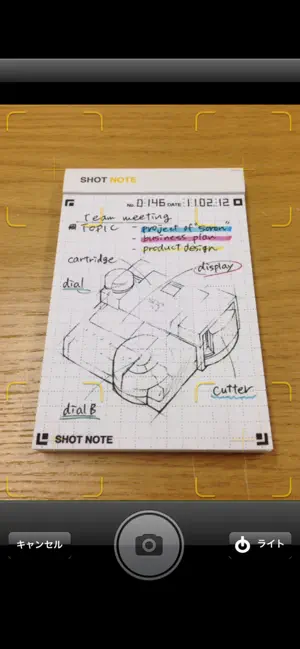 SHOT NOTE
No. 0146 DATE 11.02.12
Team meeting
TOPIC - project of "soron"
- business plan
- product design
cartridge
display
dial
cutter
dial B
SHOT NOTE
キャンセル
ライト